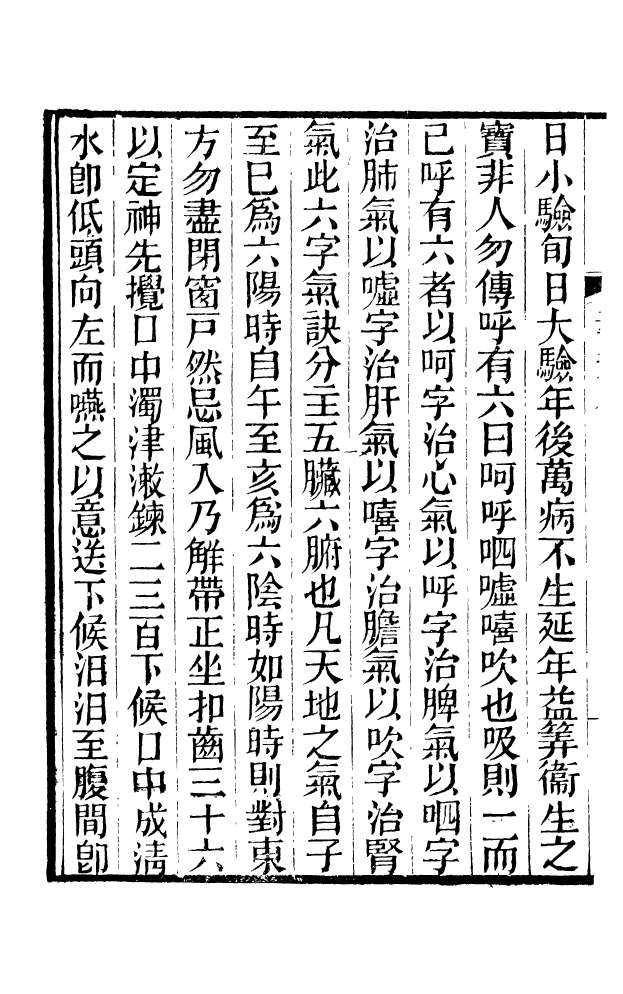 日小驗旬日大驗年後萬病不生延年益筭衞生之
寶非人勿傳呼有六曰呵呼呬噓嘻吹也吸則一而
已呼有六者以呵字治心氣以呼字治脾氣以呬字
治肺氣以噓字治肝氣以嘻字治膽氣以吹字治腎
氣此六字氣訣分主五臟六腑也凡天地之氣自子
至巳爲六陽時自午至亥爲六陰時如陽時則對東
方勿盡閉窗戸然忌風入乃解帶正坐扣齒三十六
以定神先攪口中濁津漱鍊二三百下候口中成淸
水卽低頭向左而嚥之以意送下候汩汩至腹間卽